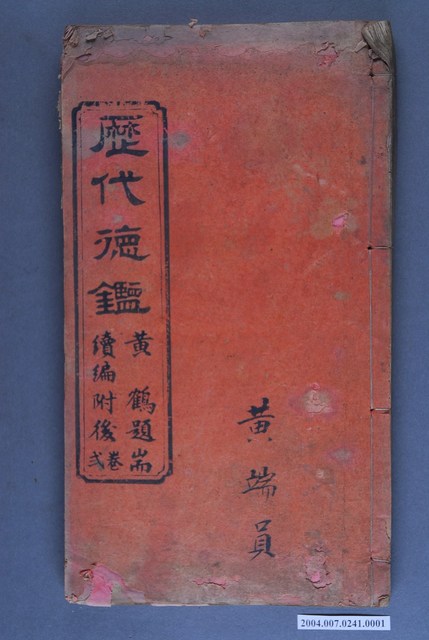 歷代德鑑
黃鶴題耑
續編附後卷弍
黃端員
2004.007.0241.0001